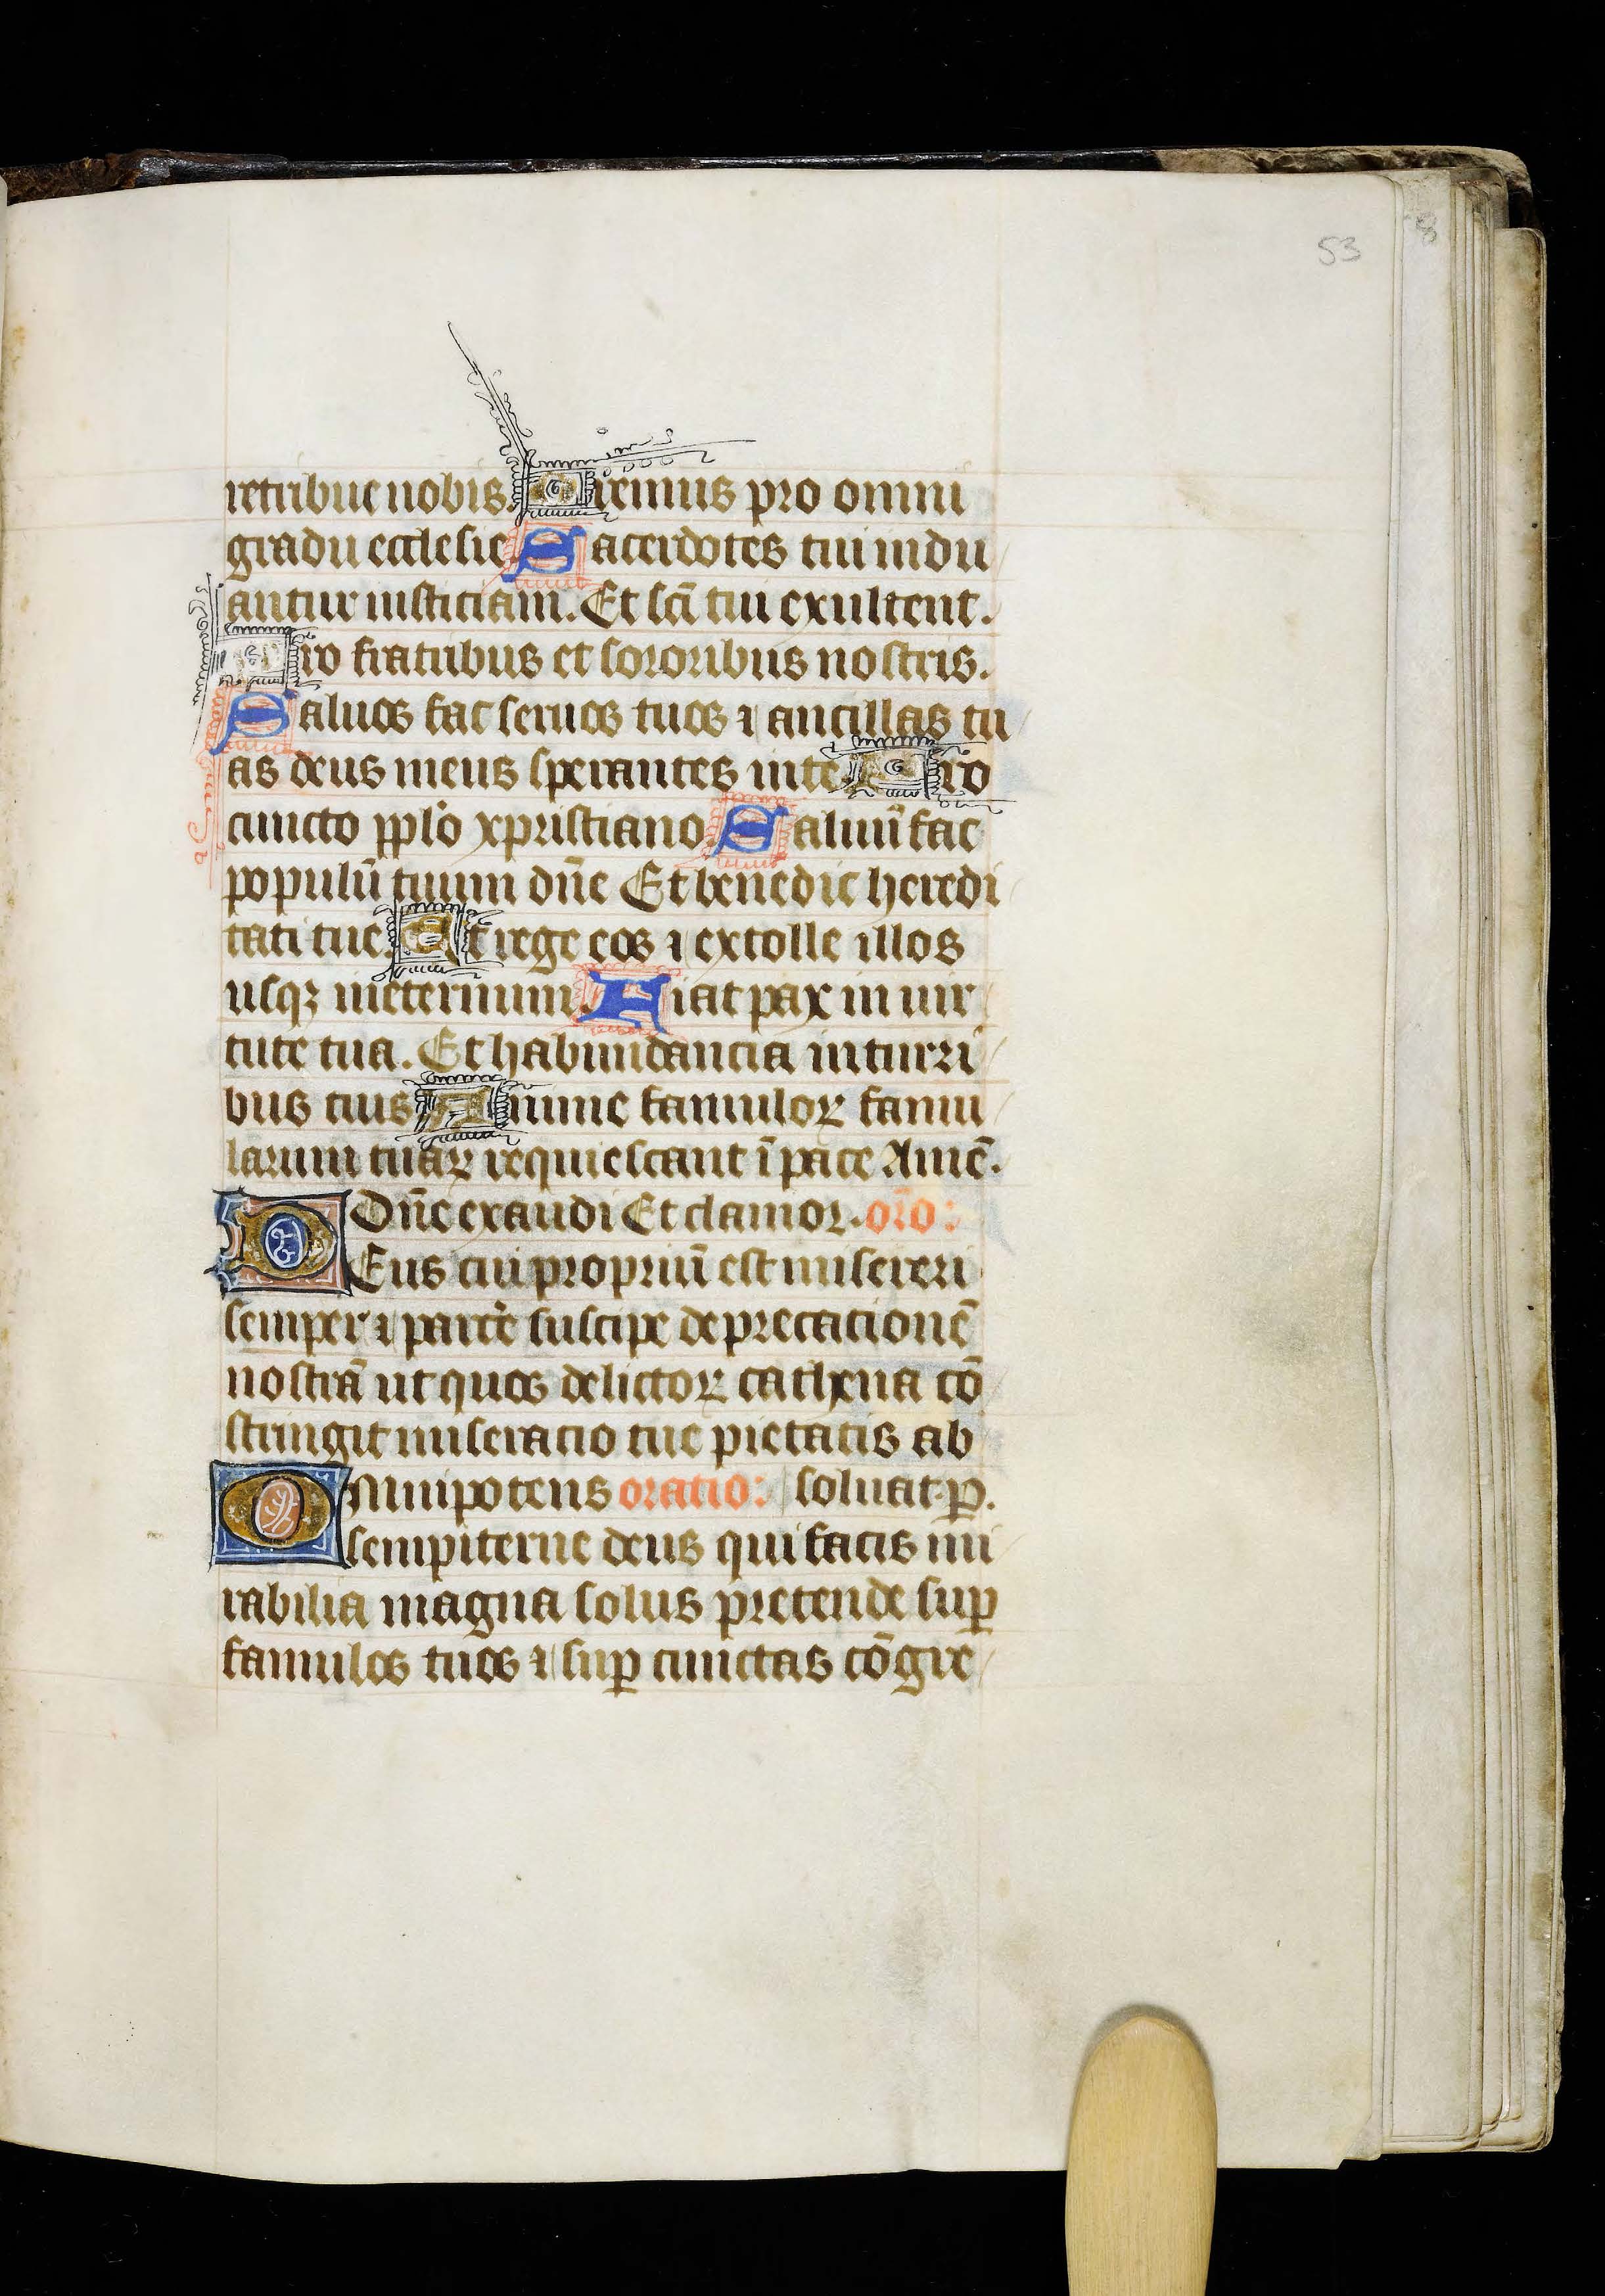 53
8
retribue nobis. Oremus pro omni
gradu ecclesie. Sacerdotes tui indu
antur iusticiam. Et sc̄i tui exultent.
Pro fratribus et sororibus nostris.
Saluos fac seruos tuos ⁊ ancillas tu
as deus meus sperantes in te. Pro
cuncto pp̄lo xpristiano. Saluū fac
populū tuum dn̄e Et benedic heredi
tati tue. Et rege eos ⁊ extolle illos
usqꝫ in eternum. Fiat pax in uir
tute tua. Et habundancia in turri
bus tuis. Anime famuloꝝ famu
larum tuaꝝ requiescant ī pace Amē.
Dn̄e exaudi Et clamor. or̄o:
DEus cui propriū est misereri
semper ⁊ parcˀe suscipe deprecacionē
nostrā ut quos delictoꝝ cathena cō
stringit miseracio tue pietatis ab
OMnipotens oratio: soluat. ꝑ.
sempiterne deus qui facis mi
rabilia magna solus pretende suꝑ
famulos tuos ⁊ suꝑ cunctas cōgre